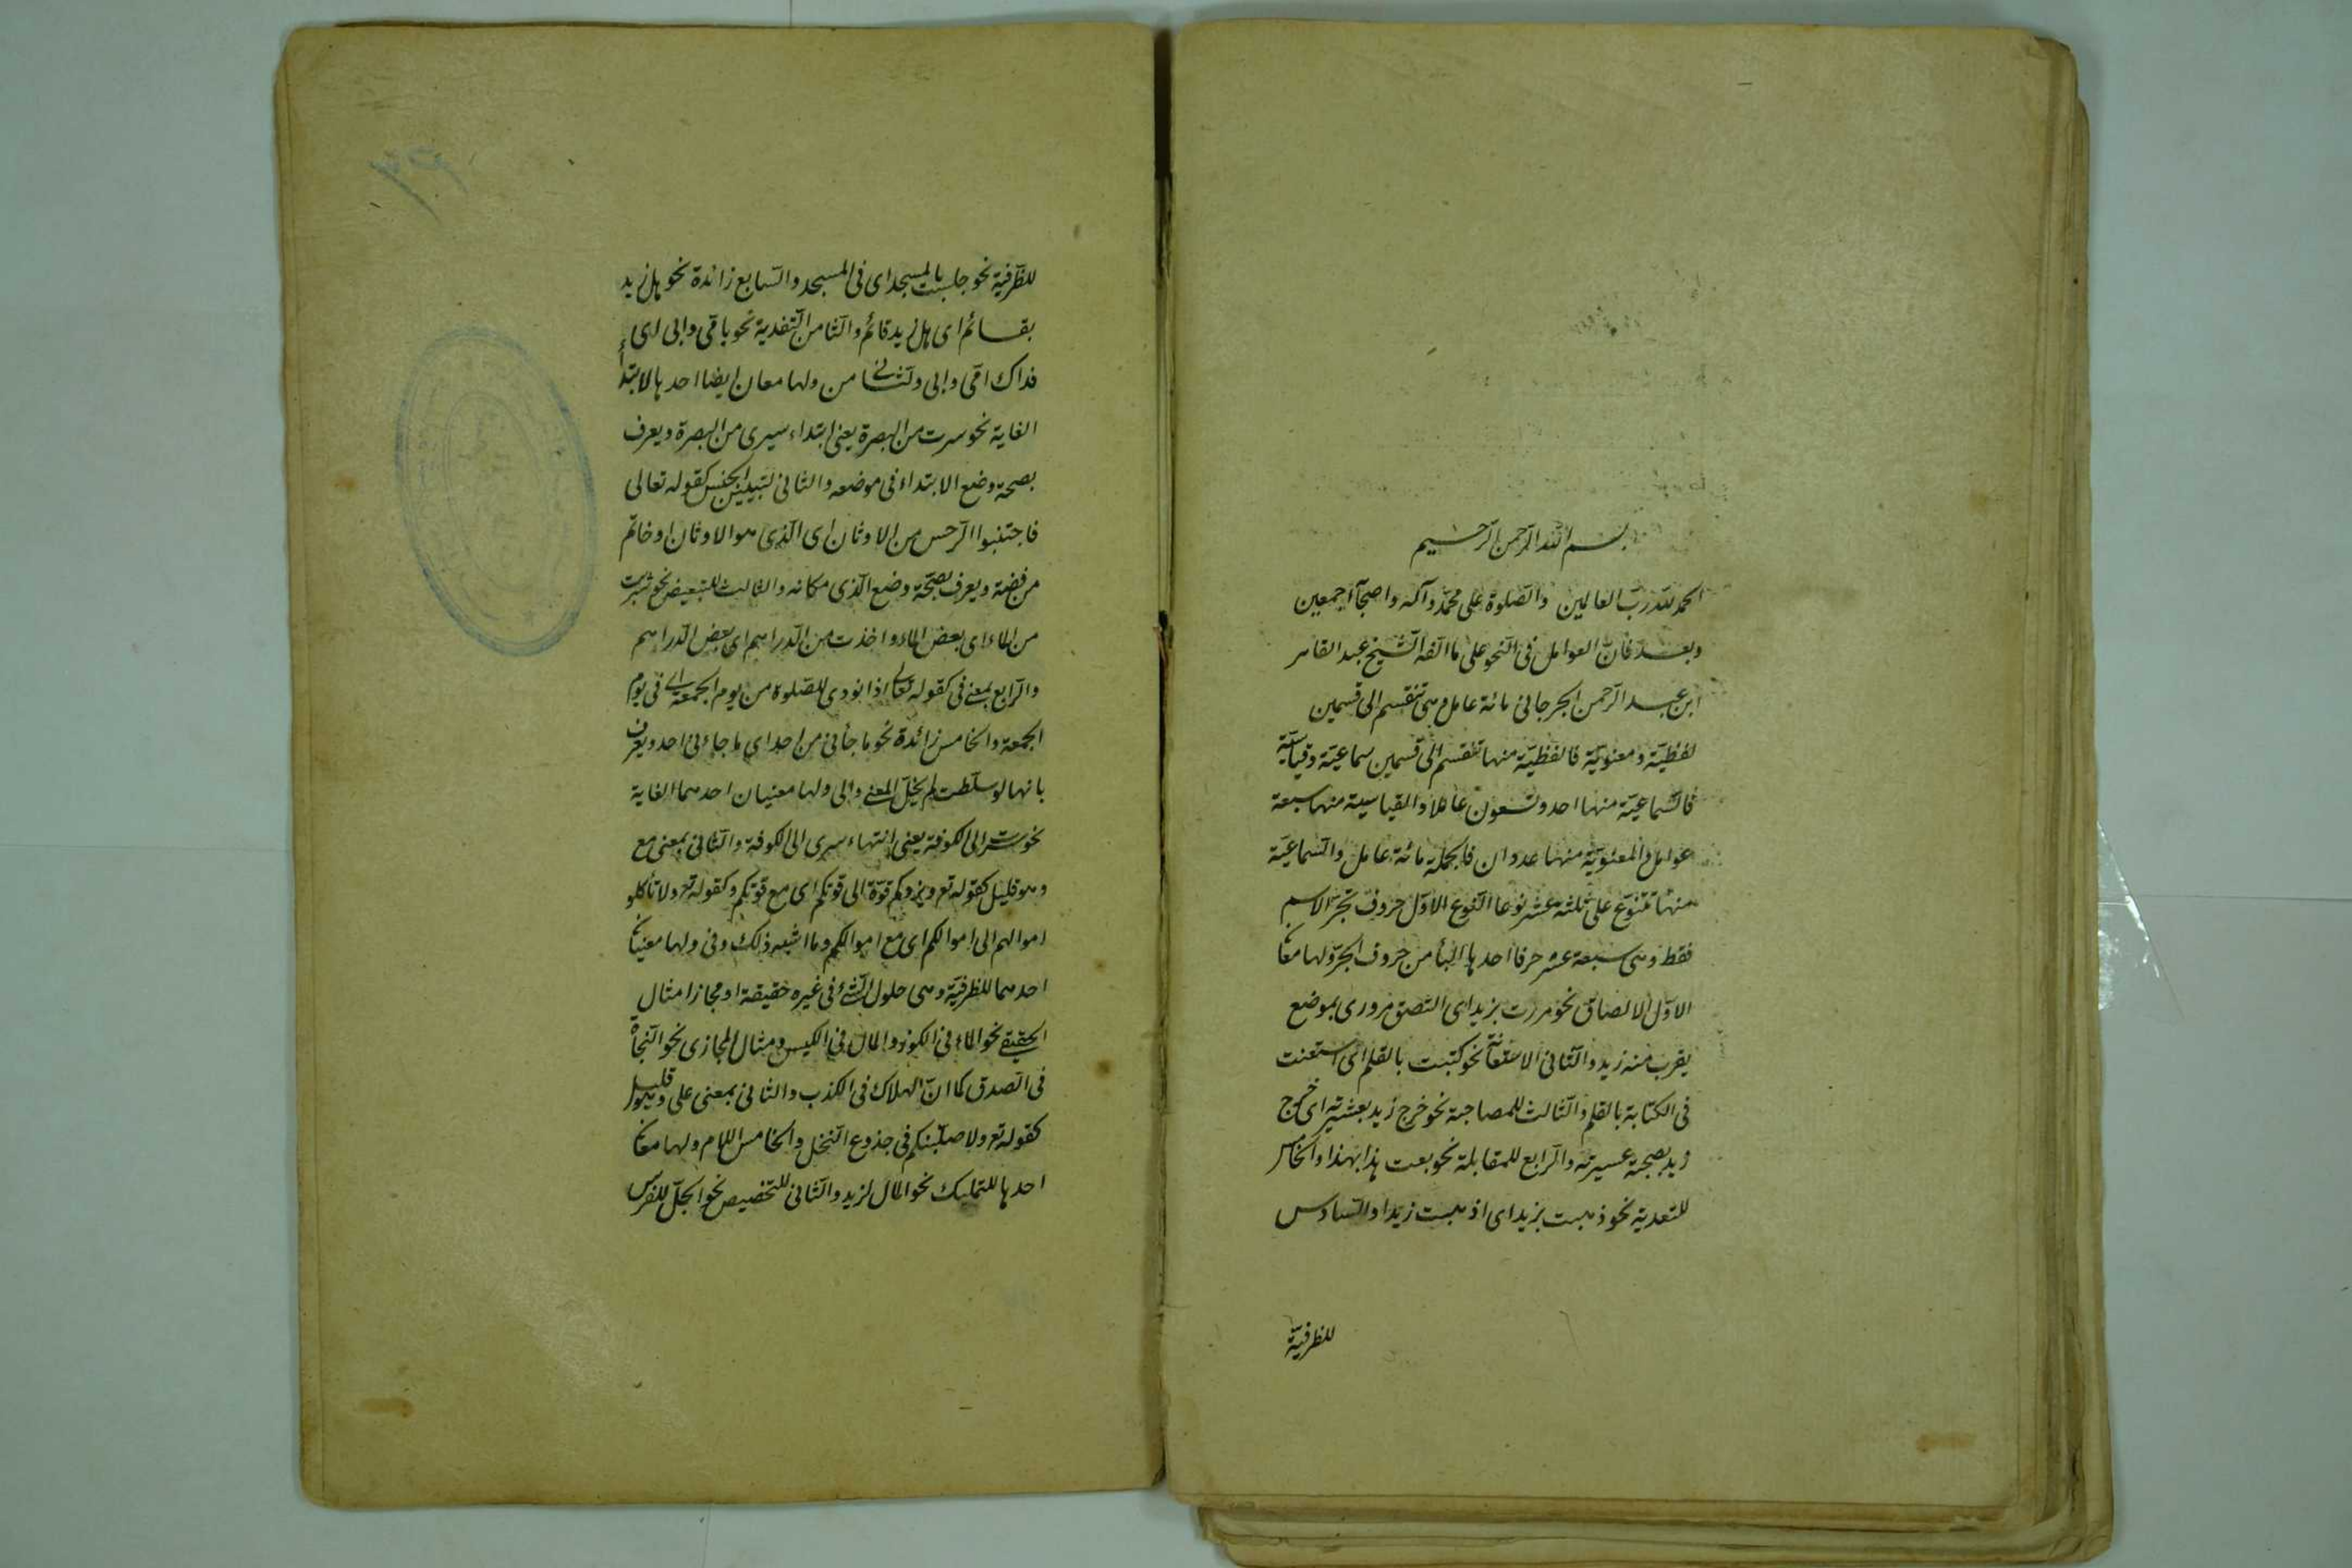 بسم الله الرحمن الرحيم
الحمد لله ربّ العالمين والصّلوة على محمّد وآله واصحآ اجمعين
وبعد فانّ العوامل فى النحو على ما الّفه الشّيخ عبد القاهر
ابن عبد الرّحمن الجرجانى مائة عامل وهى تنقسم الى قسمين
لفظيّة ومعنويّة فالفظيّة منها تنقسم الى قسمين سماعيّة وقياسيّة
فالسّماعيّة منها احد وتسعون عاملا والقياسية منها سبعة
عوامل والمعنويّة منها عددان فالجملة مائة عامل والسّماعيّة
منها تتنوّع على ثلثة عشر نوعا النّوع الاوّل حروف تجرّ الاسم
فقط وهى سبعة عشر حرفا احدها البأ من حروف الجرّ ولها معان
الاوّل الالصاق نحو مررت بزيد اى التصق مرورى بموضع
يقرب منه زيد والثّانى الاستعانة نحو كتبت بالقلم اى استعنت
فى الكتابة بالقلم والثّالث للمصاحبة نحو خرج زيد بعشيرته اى خرج
زيد بصحبة عسيرته والرّابع للمقابلة نحو بعت هذا بهذا والخامس
للتعدية نحو ذهبت بزيد اى اذهبت زيدا والسّادس
للظرفيّة
للظّرفيّة نحو جلست بالمسجد اى فى المسجد والسّابع زائدة نحو هل زيد
بقائم اى هل زيد قائم والثّامن التّفدية نحو باقى وابى اى
فداك اقى وابى والثانى من ولها معان ايضا احدها لابتدأ
الغاية نحو سرت من البصرة يعنى ابتداء سيرى من البصرة ويعرف
بصحة وضع الابتداء فى موضعه والثانى لتبيين الجنس كقوله تعالى
فاجتنبوا الرّجس من الاوثان اى الّذى هو الاوثان او خاتم
من فضّة ويعرف بصحّة وضع الّذى مكانه والثالث للتبعيض نحو شربت
من الماء اى بعض الماء واخذت من الدّراهم اى بعض الدّراهم
والرّابع بمعنى فى كقوله تعالى اذا نودى للصّلوة من يوم الجمعة اى فى يوم
الجمعة والخامس زائدة نحو ما جأنى من احد اى ما جاءنى احد ويعرف
بانها لو سقطت لم يخلّ المعنى والى ولها معنيان احدهما الغاية
نحو سرت الى الكوفة يعنى انتهاء سيرى الى الكوفة والثّانى بمعنى مع
وهو قليل كقوله تع ويزدكم قوّة الى قوتكم اى مع قوتكم وكقوله تع ولا تأكلو
اموالهم الى اموالكم اى مع اموالكم وما اشبه ذلك وفى ولها معنيان
احدهما للظرفيّة وهى حلول الشّئ فى غيره حقيقة او مجازا مثال
الحقيقى نحو الماء فى الكوز والمال فى الكيس ومثال المجازى نحو النّجاة
فى الصّدق كما انّ الهلاك فى الكذب والثانى بمعنى على وهو قليل
كقوله تع ولاصلّبنكم فى جذوع النّخل والخامس اللام ولها معان
احدها للتمليك نحو المال لزيد والثّانى للتخصيص نحو الجلّ للفرس